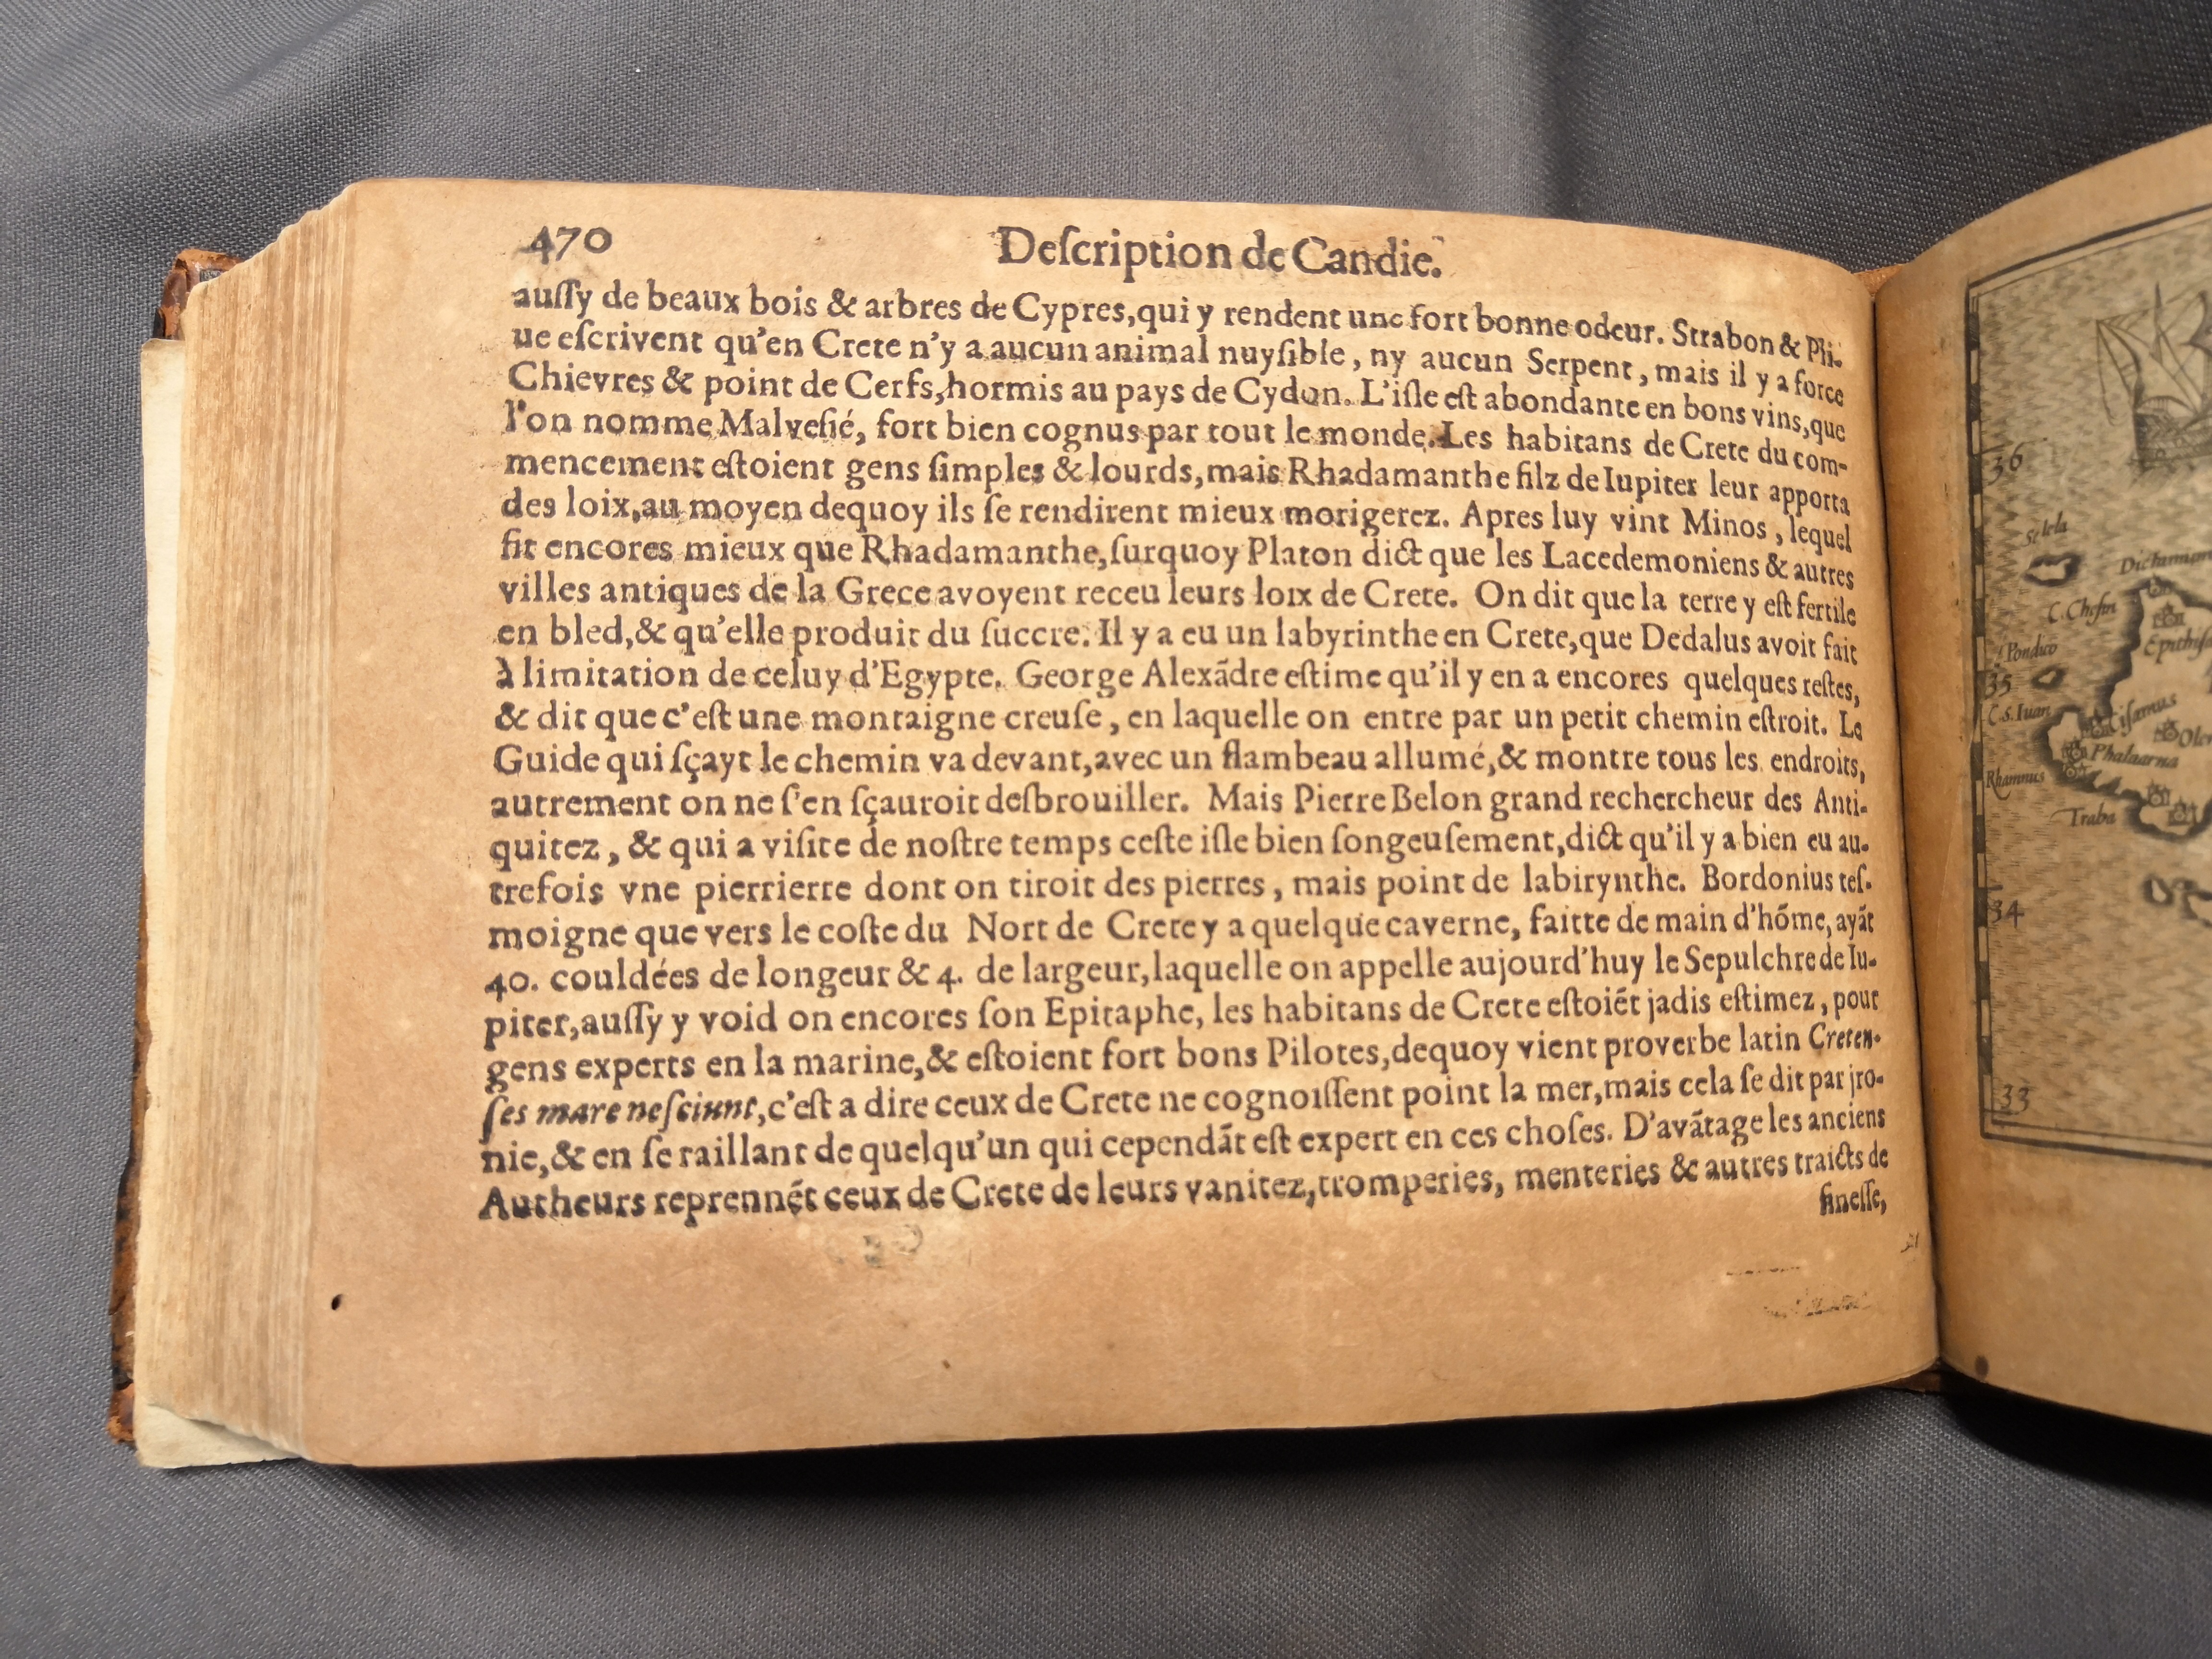 470
Deſcription de Candie.
auſſy de beaux bois & arbres de Cypres, qui y rendent une fort bonne odeur. Strabon & Pli-
ue eſcrivent qu'en Crete n'y a aucun animal nuyſible, ny aucun Serpent, mais il y a force
Chievres & point de Cerfs, hormis au pays de Cydon. L'iſle eſt abondante en bons vins, que
l'on nomme Malveſié, fort bien cognus par tout le monde. Les habitans de Crete du com-
mencement eſtoient gens ſimples & lourds, mais Rhadamanthe filz de Iupiter leur apporta
des loix, au moyen dequoy ils ſe rendirent mieux morigerez. Apres luy vint Minos, lequel
fit encores mieux que Rhadamanthe, ſurquoy Platon dict que les Lacedemoniens & autres
villes antiques de la Grece avoyent receu leurs loix de Crete. On dit que la terre y eſt fertile
en bled, & qu'elle produit du ſuccre. Il y a eu un labyrinthe en Crete, que Dedalus avoit fait
à limitation de celuy d'Egypte. George Alexãdre eſtime qu'il y en a encores quelques reſtes,
& dit que c'eſt une montaigne creuſe, en laquelle on entre par un petit chemin eſtroit. Le
Guide qui ſçayt le chemin va devant, avec un flambeau allumé, & montre tous les endroits,
autrement on ne ſ'en ſçauroit desbrouiller. Mais Pierre Belon grand rechercheur des Anti-
quitez, & qui a viſite de noſtre temps ceſte iſle bien ſongeuſement, dict qu'il y a bien eu au-
trefois vne pierrierre dont on tiroit des pierres, mais point de labirynthe. Bordonius teſ-
moigne que vers le coſte du Nort de Crete y a quelque caverne, faitte de main d'hõme, ayãt
40. couldées de longeur & 4. de largeur, laquelle on appelle aujourd'huy le Sepulchre de Iu-
piter, auſſy y void on encores ſon Epitaphe, les habitans de Crete eſtoiẽt jadis eſtimez, pour
gens experts en la marine, & eſtoient fort bons Pilotes, dequoy vient proverbe latin Creten-
ſes mare neſciunt, c'eſt a dire ceux de Crete ne cognoiſſent point la mer, mais cela ſe dit par jro-
nie, & en ſe raillant de quelqu'un qui cependãt eſt expert en ces choſes. D'avãtage les anciens
Autheurs reprennẽt ceux de Crete de leurs vanitez, tromperies, menteries & autres traicts de
fineſſe,
36
Selela
C. Cheſin
Pondico
35
C. S. Iuan
Ciſamus
Phalaarna
Rhamnus
Traba
34
33